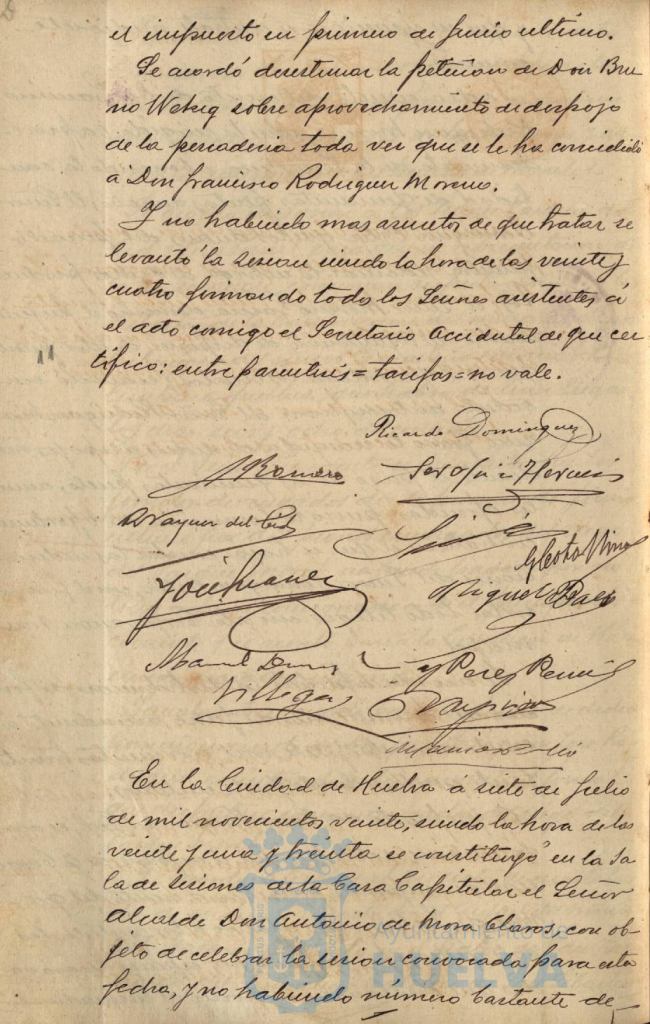 el impuesto en primero de Junio ultimo.
Se acordó desestimar la peticion de Don Bru
no Wetzig sobre aprovechamiento de despojo
de la pescaderia toda vez que se le ha concedido
á Don Francisco Rodriguez Moreno.
Y no habiendo mas asuntos de que tratar se
levantó la sesion siendo la hora de las veinte y
cuatro firmando todo los Señores asistentes á
el acto comigo el Secretario Accidental de que cer-
tifico: entre parentesis = tarifas = no vale.
Ricardo Dominguez
J Romero
Serafin
A Vazquez del Cid
José Suarez
Miguel Baez
Manuel
Villegas
y Perez
En la Ciudad de Huelva á siete de Julio
de mil novecientos veinte, siendo la hora de las
veinte y una y treinta se constituyó en la Sa
la de sesiones de la Casa Capitular el Señor
Alcalde Don Antonio de Mora Claros, con ob-
jeto de celebrar la sesion convocada para esta
fecha, y no habiendo número bastante de-
Ayuntamiento
HUELVA